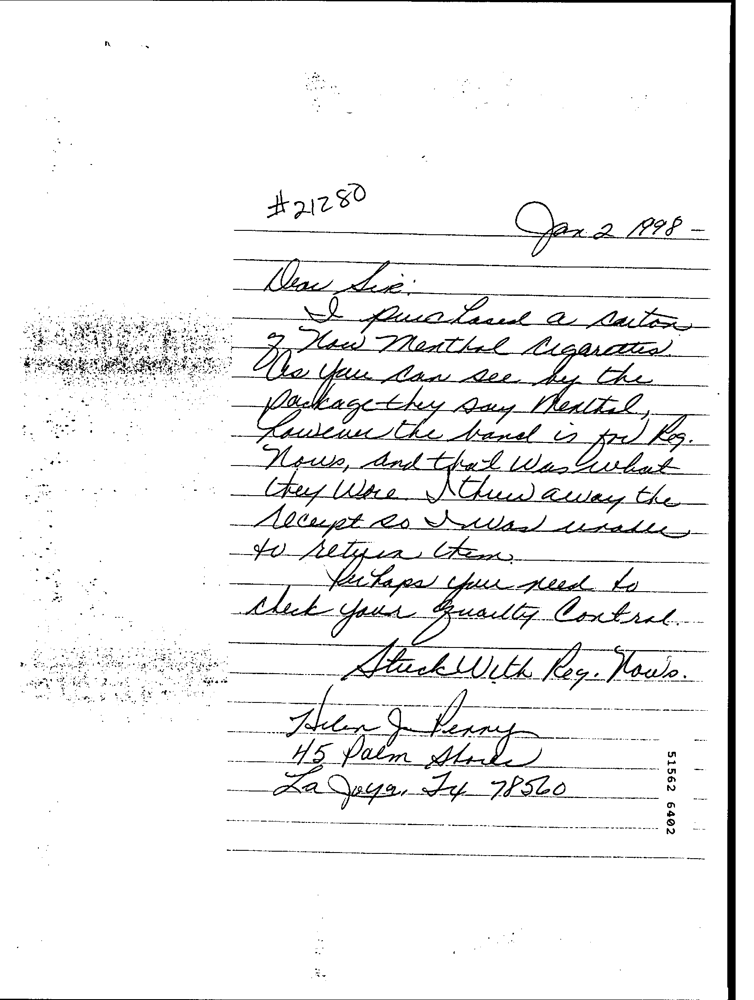 #21280
Jan 2 1998 -
Dear Sir:
I purchased a carton
of Now Menthol Cigarettes
As you can see by the
package they say Menthol,
however the band is for Reg.
Nows, and that was what
they were. I threw away the
receipt so I was unable
to return them.
Perhaps you need to
check your Quailty Control.
Stuck With Reg. Now's.
Helen J. Penny
45 Palm Shores
La Joya, Tx 78560
51562 6402